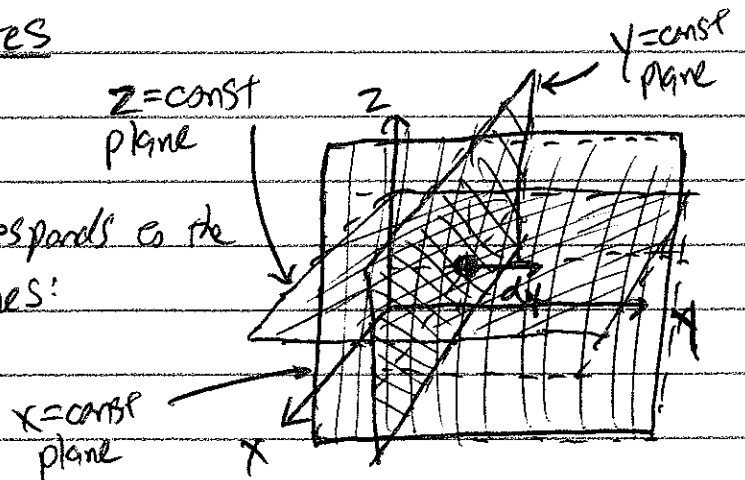 tes
y=const
plane
z=const
plane
z
esponds to the
nes:
dy
y
x=const
plane
x